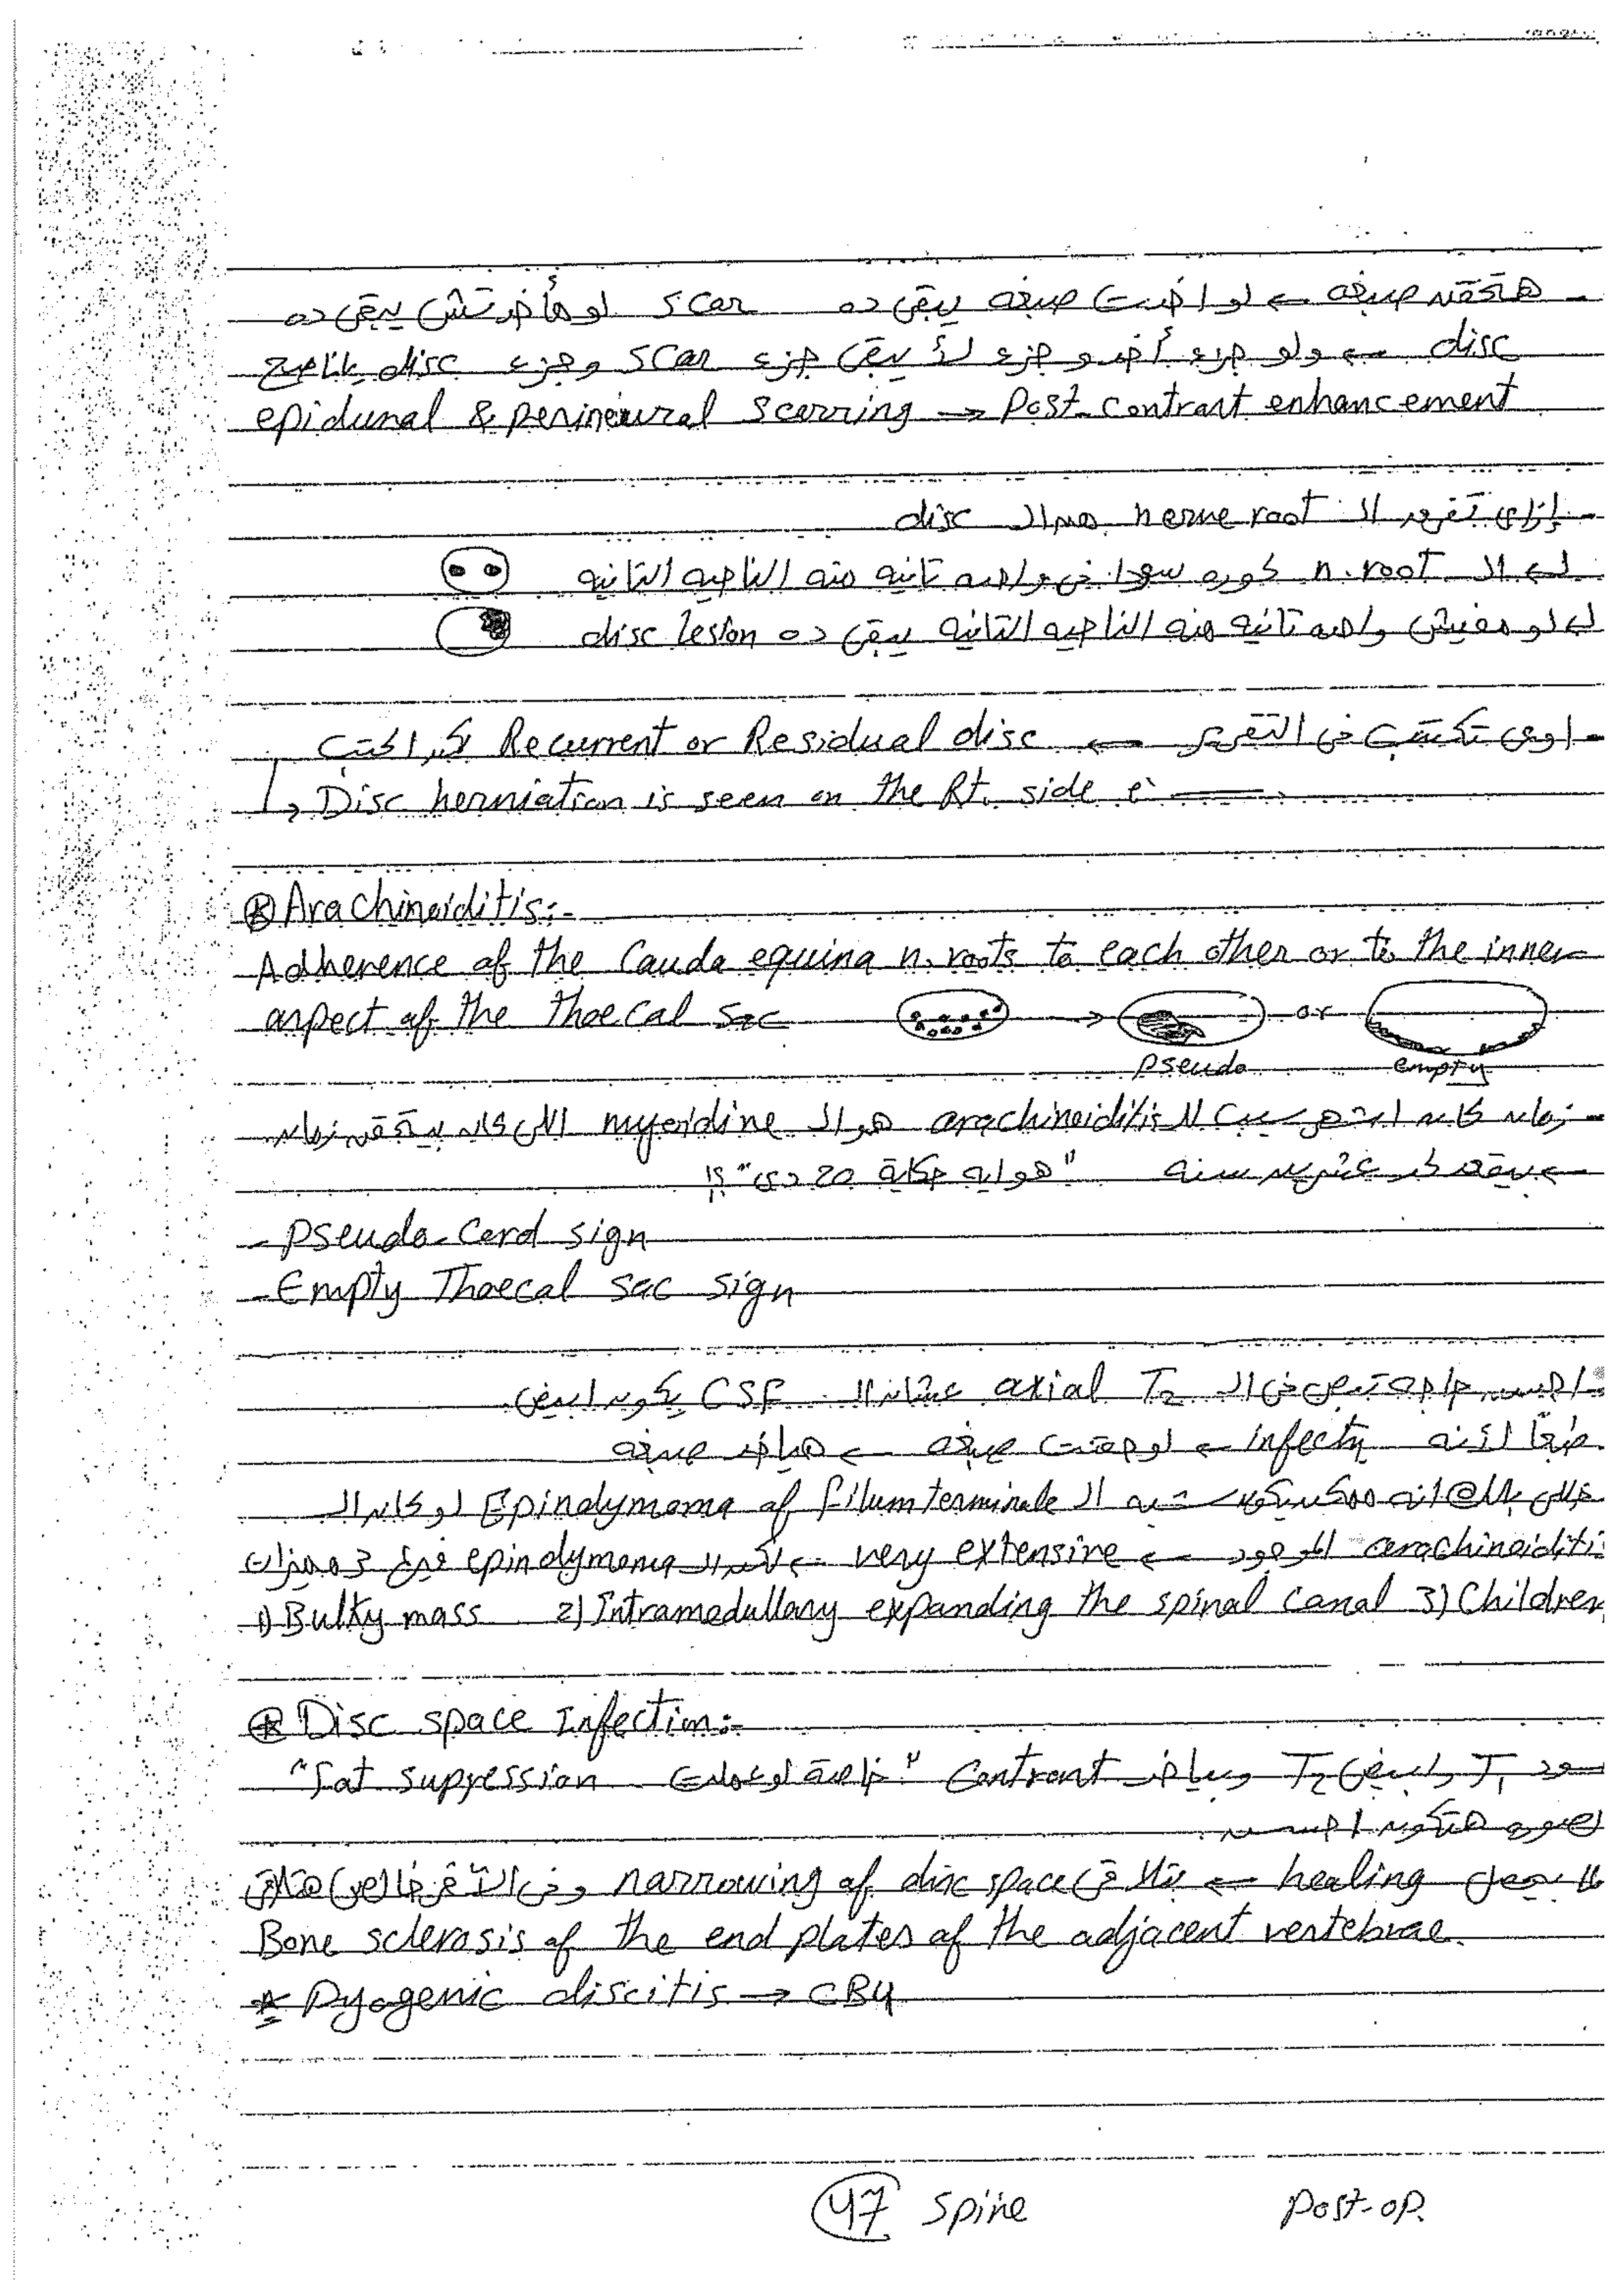 - هتحقن صبغه ← لو اخدت صبغه يبقى ده scar لو مأخدتش يبقى ده
disc ← ولو جزء أخد وجزء لأ يبقى جزء scar وجزء disc يا ناصح
epidural & perineural scarring → Post-contrast enhancement
- إزاى تفرق ال nerve root من ال disc
ال n. root كوره سودا فى واحده تانيه من الناحيه التانيه
لو مفيش واحده تانيه من الناحيه التانيه يبقى ده disc lesion
- اوعى تكتب فى التقرير ← Recurrent or Residual disc اكتب
↳ Disc herniation is seen on the Rt. side
⊛ Arachinoiditis:-
Adherence of the Cauda equina n. roots to each other or to the inner
aspect of the thoecal sac → or
pseudo empty
- زمان كان اشهر سبب لل arachinoiditis هو ال myeridine اللى كان بيتحقن زمان
← بيقعد عشرين سنه "هو ايه حكاية 20 دى" ؟!
- Pseudo-Cord sign
- Empty Thoecal sac sign
احسن حاجه تبص فى ال axial T2 عشان ال CSF يكون ابيض
طبعًا لأنه infectn ← لو حقنت صبغه ← هياخد صبغه
خلى بالك انه ممكن يكون شبه ال Epindymoma of filum terminale لو كان ال
arachinoiditis الموجود ← very extensive ← ال epindymoma فيها 3 مميزات
1) Bulky mass 2) Intramedullary expanding the spinal canal 3) Children
⊛ Disc space Infection:-
اسود T1 وابيض T2 وبياخد Contrast "خاصة لو عملت Fat supression"
الصوره هتكون احسن
لما يحصل healing ← بتلاقى narrowing of disc space وفى هتلاقى
Bone sclerosis of the end plates of the adjacent vertebrae.
* Pyogenic discitis → CB4
47 Spine Post-op.